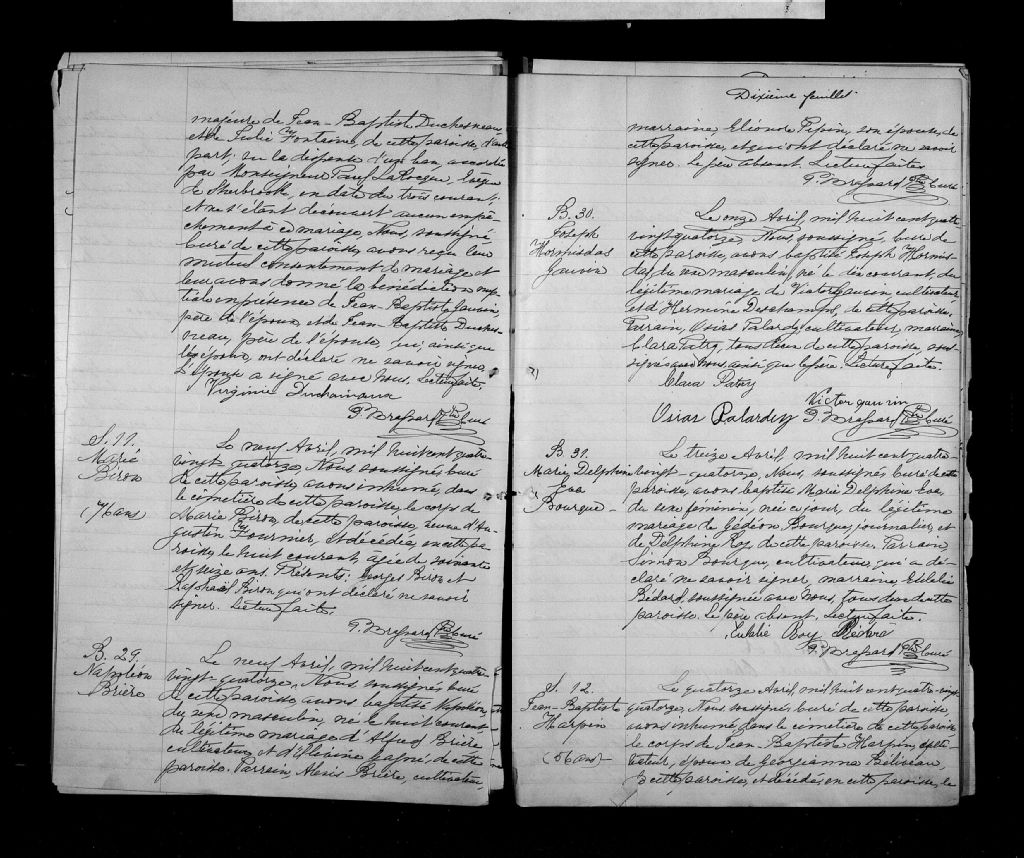 majeure de Jean-Baptiste Duchesneau
et de Julie Fontaine, de cette paroisse, d'autre
part; vu la dispense d'un ban, accordée
par Monseigneur Paul LaRocque, Evêque
de Sherbrooke, en date du trois courant;
et ne s'étant découvert aucun empê-
chement à ce mariage, Nous, soussigné
curé de cette paroisse, avons reçu leur
mutuel consentement de mariage et
leur avons donné la bénédiction nup-
tiale en présence de Jean-Baptiste Gauvin,
père de l'époux, et de Jean-Baptiste Duches-
neau, père de l'épouse, qui, ainsi que
l'époux, ont déclaré ne savoir signer.
L'épouse a signé avec Nous. Lecture faite.
Virginie
G. Bressard Ptre Curé
S. 11.
Marie
Biron
(76 ans)
Le neuf Avril, mil huit cent quatre-
vingt-quatorze, Nous soussigné, curé
de cette paroisse, avons inhumé, dans
le cimetière de cette paroisse, le corps de
Marie Biron, de cette paroisse, veuve d'Au-
gustin Fournier, et décédée, en cette pa-
roisse, le huit courant, âgée de soixante
et seize ans. Présents: Georges Biron et
Raphaël Biron qui ont déclaré ne savoir
signer. Lecture faite.
G. Bressard Ptre Curé
B. 29.
Napoléon
Brière
Le neuf Avril, mil huit cent quatre-
vingt-quatorze, Nous soussigné curé
de cette paroisse, avons baptisé Napoléon,
du sexe masculin, né le huit courant,
du légitime mariage d'Alfred Brière
cultivateur, et d' Gagné, de cette
paroisse. Parrain, Alexis Brière, cultivateur,
Dixième feuillet
marraine, Eléonore Pépin, son épouse, de
cette paroisse, et qui ont déclaré ne savoir
signer. Le père absent. Lecture faite.
G. Bressard Ptre Curé
B. 30.
Joseph
Hormisdas
Gauvin
Le onze Avril, mil huit cent quatre-
vingt quatorze, Nous, soussigné, curé de
cette paroisse, avons baptisé Joseph Hormis-
das, du sexe masculin, né le dix courant, du
légitime mariage de Victor Gauvin cultivateur
et d'Hermine Deschamps, de cette paroisse.
Parrain, Osias Palardy, cultivateur, marraine,
Clara Patry, tous deux de cette paroisse, sous-
signés avec Nous, ainsi que le père. Lecture faite.
Clara Patry
Victor gauvin
Osias Palardy G. Bressard Ptre Curé
B. 31.
Marie Delphine
Eva
Bourque
Le treize Avril, mil huit cent quatre-
vingt-quatorze, Nous, soussigné, curé de cette
paroisse, avons baptisé Marie Delphine Eva,
du sexe féminin, née ce jour, du légitime
mariage de Gédéon Bourque, journalier, et
de Delphine Roy, de cette paroisse. Parrain,
Simon Bourque, cultivateur, qui a dé-
claré ne savoir signer, marraine, Eulalie
Bédard, soussignée avec Nous, tous deux de cette
paroisse. Le père absent. Lecture faite.
Eulalie Roy Bédard
G. Bressard Ptre Curé
S. 12.
Jean-Baptiste
Harpin
(56 ans)
Le quatorze Avril, mil huit cent quatre-vingt-
quatorze, Nous soussigné, curé de cette paroisse
avons inhumé dans le cimetière de cette paroisse
le corps de Jean-Baptiste Harpin, culti-
vateur, époux de Georgianna Béliveau,
de cette paroisse, et décédé, en cette paroisse, le